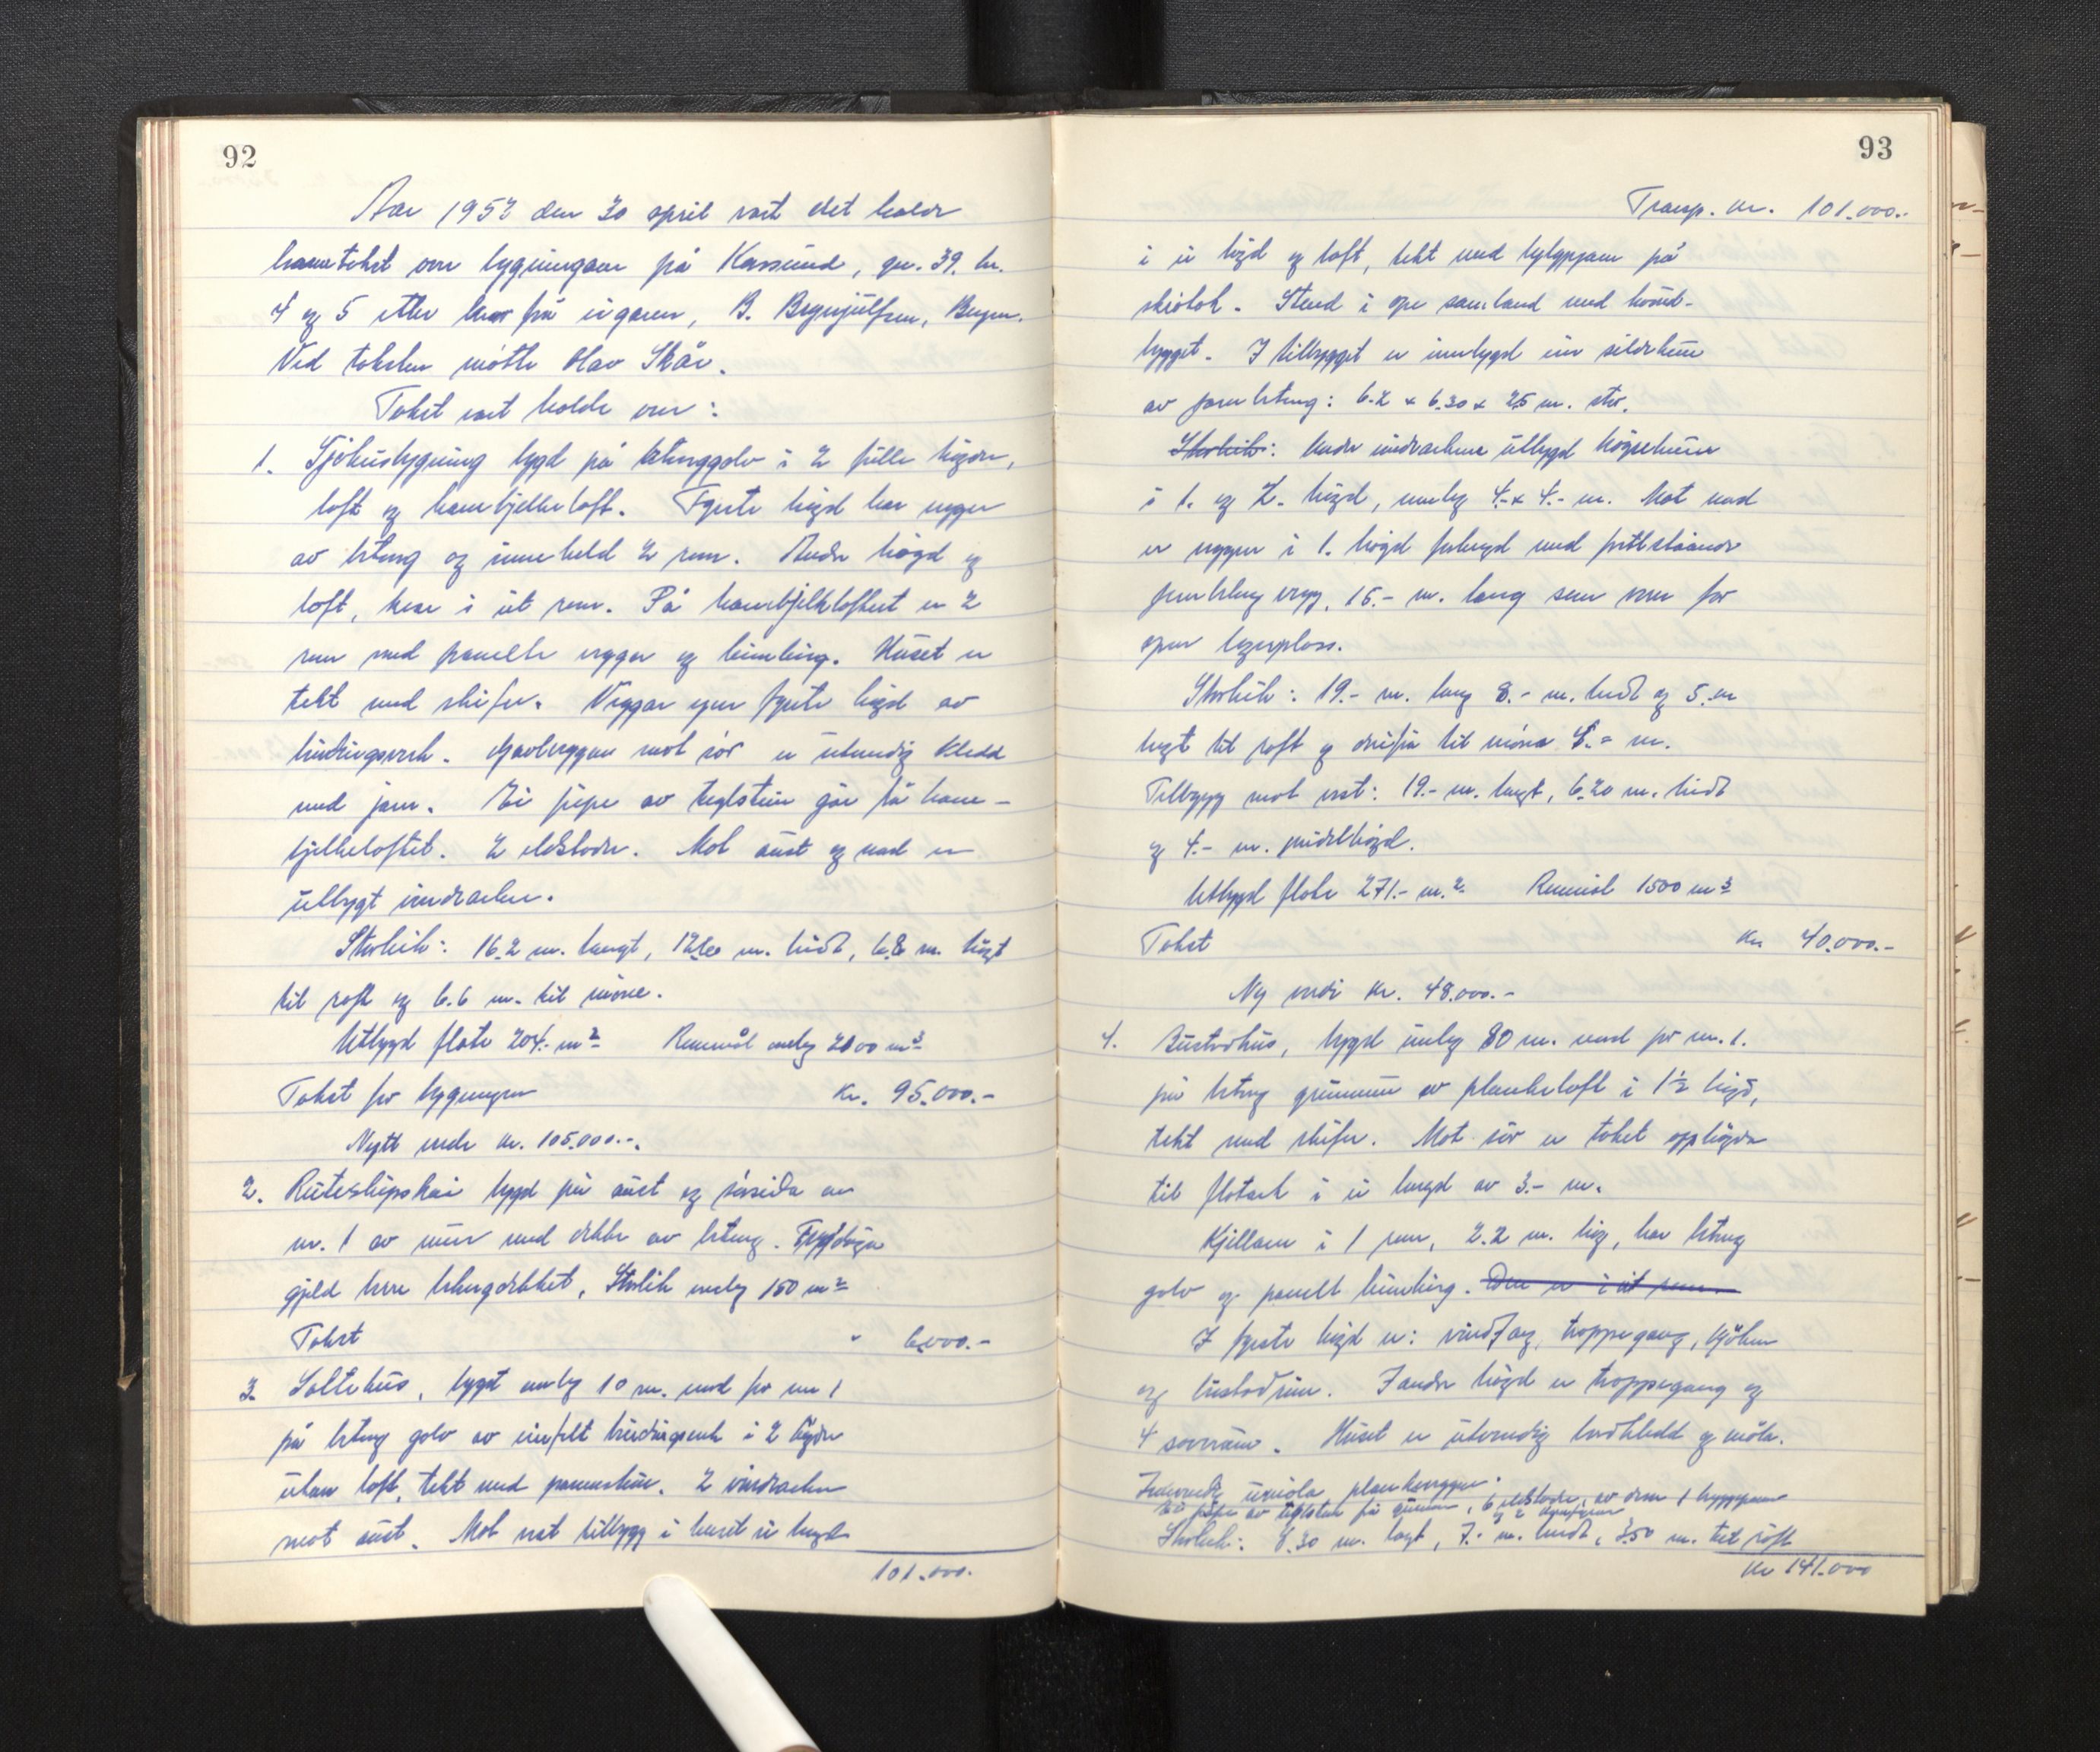 92
Aar 1953 den 30 april vart det halde
branntakst over bygningane på Kersund, gn. 39. br.
4 og 5 etter krav frå eigaren, B. Brynjulfsen, Bergen.
Ved taksten møtte Olav Skår.
Takst vart halde over:
1. Sjøhusbygning bygd på betonggolv i 2 fulle høgder,
loft og hanebjelkeloft. Fyrste høgd har vegger
av betong og inneheld 2 rom. Andre høgd og
loft, kvar i eit rom. På hanebjelkeloftet er 2
rom med panelte vegger og himling. Huset er
tekt med skifer. Veggar yver fyrste høgd av
bindingsverk. Gavlveggen mot sør er utvendig kledd
med jarn. Ei pipe av teglstein går frå hane-
bjelkeloftet. 2 eldstader. Mot aust og nord er
utbygt vindearker.
Storleik: 16.2 m. langt, 12.60 m. bredt, 6.8 m. høgt
til røst og 6.6 m. til møne.
Utbygd flate 204.- m² Rommål umleg 2100 m³
Takst for bygningen Kr. 95.000.-
Nytt verde kr. 105.000.-.
2. Ruteskipskai bygd på aust og sørsida av
nr. 1 av mur med dekke av betong.
gjeld berre betongdekket, Storleik umleg 150 m²
Takst " 6.000.-
3. Saltehus, bygt umleg 10 m. nord for nr 1
på betong golv av einfelt bindingsverk i 2 høgder
utan loft, tekt med pannestein. 2 vindearker
mot aust. Mot vest tilbygg i huset si lengde
101.000.
93
Transp. kr. 101.000.-
i ei høgd og loft, tekt med bylgjejarn på
skråtak. Stend i ope samband med hovud-
bygget. I tilbygget er innbygd ein sildekum
av jarnbetong: 6.2 x 6.30 x 2.5 m. stor.
Storleik: Under vindearkene utbygd
i 1. og 2. høgd, umleg 4.- x 4.- m. Mot nord
er veggen i 1. høgd forlengd med frittståande
jarnbetong vegg, 15.- m. lang som vern for
open lagerplass.
Storleik: 19.- m. lang 8.- m. bredt og 5. m
høgt til røst og derifrå til møna 4.- m.
Tilbygg mot vest: 19.- m. langt, 6.20 m. bredt
og 4.- m. midelhøgd.
Utbygd flate 271.- m.² Rommål 1500 m³
Takst Kr 40.000.-
Ny verdi kr. 48.000.-
4. Bustadhus, bygd umleg 80 m. nord for nr. 1.
på betong grunnmur av plankeloft i 1½ høgd,
tekt med skifer. Mot sør er taket opphøgde
til flatark i ei lengd av 3.- m.
Kjellaren i 1 rom, 2.2 m. høg, har betong
golv og panelt himling. Den er i eit rom.
I fyrste høgd er: vindfang, troppegang, kjøken
og bustadrum. I andre høgd er troppegang og
4 soverom. Huset er utvendig bordkledd og måla.
Innvendig umåla plankevegger.
Ei pipe av teglstein frå grunnen, 6 eldstader, av dem 1 bryggepanne
Storleik: 8.30 m. langt, 7.- m. bredt, 3.50 m. til røst
Kr 141.000